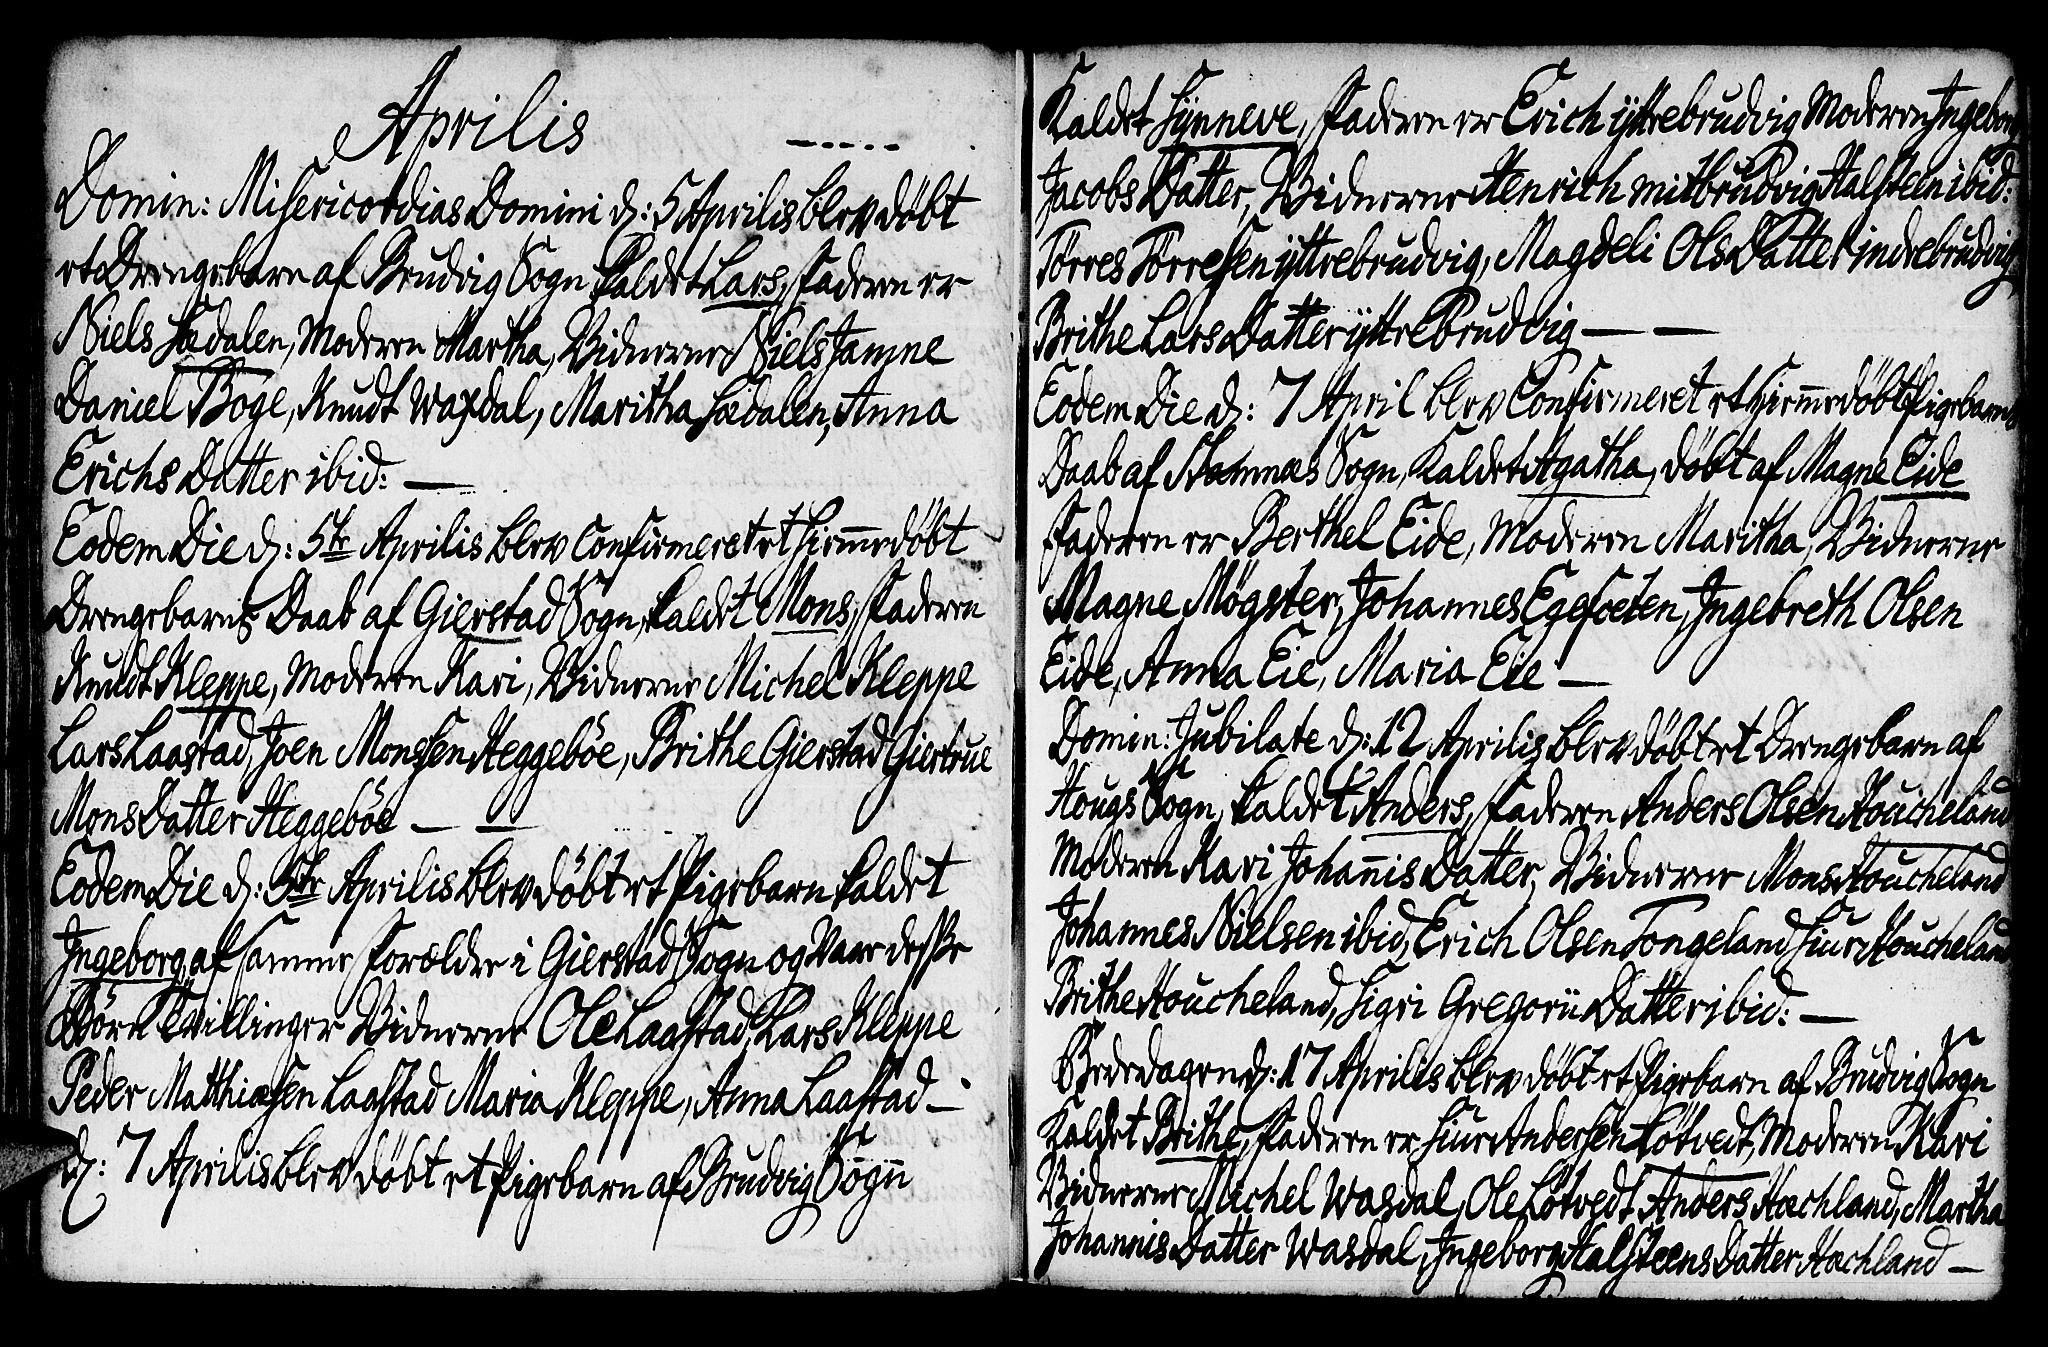 Aprilis
Domin: Misericordias Domini d: 5 Aprilis blev döbt
et Drengebarn af Brudvig Sogn kaldet Lars, Faderen er
Niels Sædalen, Moderen Martha, Vidnerne Niels Jamne
Daniel Boge, Knudt Waxdal, Maritha Sædalen, Anna
Erichs Datter ibid: —
Eodem Die d: 5te Aprilis blev Confirmeret et hiemmedöbt
Drengebarns Daab af Gierstad Sogn, kaldet Mons, Faderen
Knudt Kleppe, Moderen Kari, Vidnerne Michel Kleppe
Lars Laastad, Joen Monssen Heggeböe, Brithe Gierstad Giertrue
Mons Datter Heggeböe — —
Eodem Die d: 5te Aprilis blev döbt et Pigebarn kaldet
Ingeborg, af samme Forældre i Gierstad Sogn og Vare disse
Börn Tvillinger Vidnerne Ole Laastad, Lars Kleppe
Peder Matthiæsen Laastad Maria Kleppe, Anna Laastad —
d: 7 Aprilis blev döbt et Pigebarn af Brudvig Sogn
Kaldet Synneve, Faderen er Erich yttrebrudvig Moderen Ingeborg
Jacobs Datter, Vidnerne Henrich mitbrudvig Halsteen ibid:
Törres Törresen yttrebrudvig, Magdeli Ols Datter indrebrudvig
Brithe Lars Datter yttrebrudvig — —
Eodem Die d: 7 April blev Confirmeret et hiemmedöbt Pigebarns
Daab af Stamnæs Sogn, Kaldet Agatha, döbt af Magne Eide
Faderen er Berthel Eide, Moderen Maritha, Vidnerne
Magne Mögster, Johannes Egesoeten, Ingebreth Olsen
Eide, Anna Eie, Maria Eie —
Domin: Jubilate d: 12 Aprilis blev döbt et Drengebarn af
Hougs Sogn, kaldet Anders, Faderen Anders Olsen Houcheland
Moderen Kari Johannis Datter, Vidnerne Mons Houcheland
Johannes Nielsen ibid, Erich Olsen Tongeland, Siur Houcheland
Brithe Houcheland, Sigri Gregorii Datter ibid: —
Bededagen d: 17 Aprilis blev döbt et Pigebarn af Brudvig Sogn
Kaldet Brithe, Faderen er Siur Andersen Lötvedt, Moderen Kari
Vidnerne Michel Wasdal, Ole Lötvedt Anders Hachland, Martha
Johannis Datter Wasdal, Ingeborg Halsteens Datter Hachland —